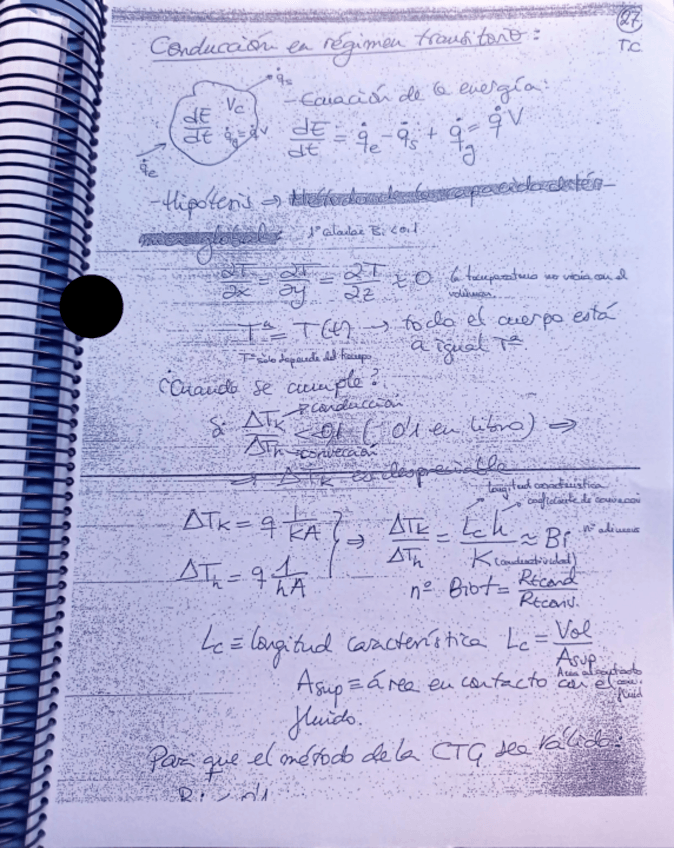 27
TC
Conducción en régimen transitorio:
q̇s
Vc
dE/dt q̇g = q̇V
q̇e
- Ecuación de la energía:
dE/dt = q̇e - q̇s + q̇g = q̇V
- Hipótesis ⇒ Método de la capacidad tér-
mica global
1º Calcular Bi < 0'1
∂T/∂x = ∂T/∂y = ∂T/∂z ≈ 0 la temperatura no varía con el
volumen.
Tª = T(t) → todo el cuerpo está
a igual Tª
Tª solo depende del tiempo
¿Cuando se cumple?
Si ΔTk/ΔTh < 0,1 (0'1 en libro) ⇒
conducción
convección
⇒ ΔTk es despreciable
longitud característica
coeficiente de convección
ΔTk = q L/KA
ΔTh = q 1/hA
⇒ ΔTk/ΔTh = Lc h/K ≈ Bi nº adimens
(conductividad)
nº Biot = Rtcond/Rtconv.
Lc ≡ longitud característica Lc = Vol/Asup
Area al contacto
con fluid
Asup ≡ área en contacto con el
fluido.
Para que el método de la CTG sea válido:
Bi < 0'1